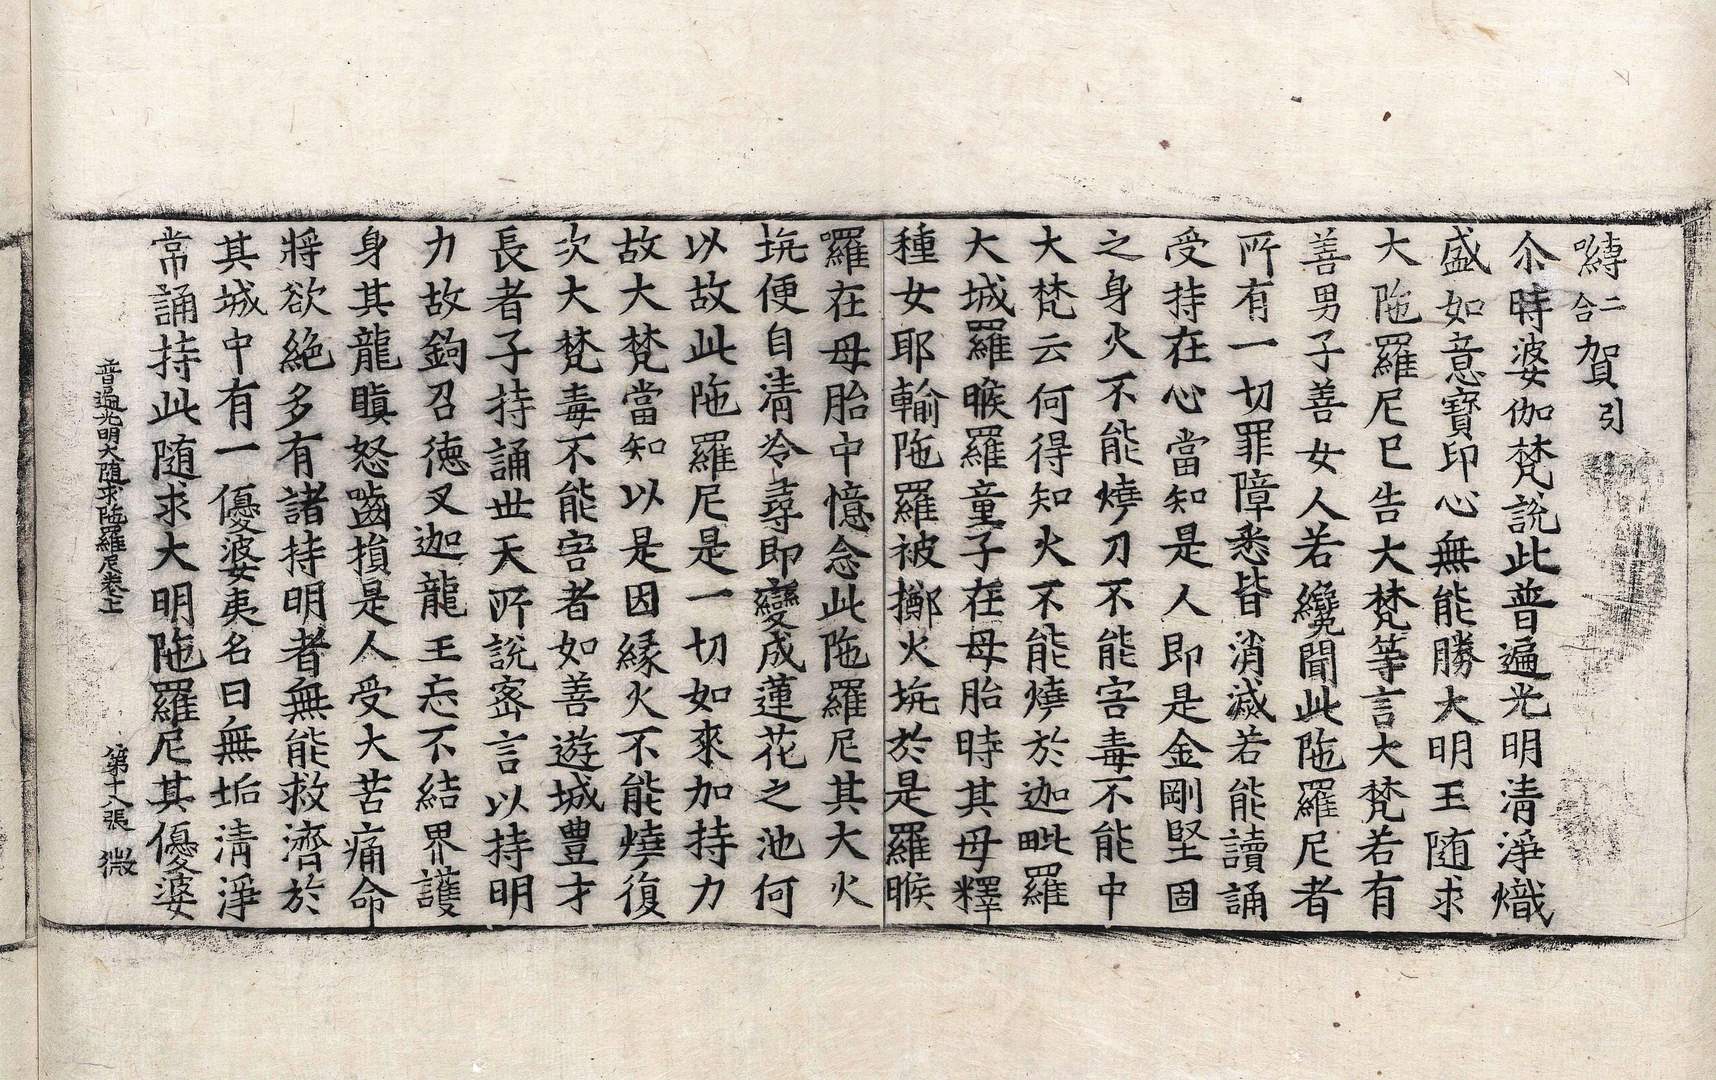 嚩二合賀引
尒時婆伽梵説此普遍光明清淨熾
盛如意寶印心無能勝大明王随求
大陁羅尼巳告大梵等言大梵若有
善男子善女人若纔聞此陁羅尼者
所有一切罪障悉皆消滅若能讀誦
受持在心當知是人即是金剛堅固
之身火不能燒刀不能害毒不能中
大梵云何得知火不能燒於迦毗羅
大城羅睺羅童子在母胎時其母釋
種女耶輸陁羅被擲火坑於是羅睺
羅在母胎中憶念此陁羅尼其大火
坑便自清冷尋即變成蓮花之池何
以故此陁羅尼是一切如來加持力
故大梵當知以是因緣火不能燒復
次大梵毒不能害者如善遊城豊才
長者子持誦世天所説密言以持明
力故鉤召德叉迦龍王忘不結界護
身其龍瞋怒齧損是人受大苦痛命
將欲絶多有諸持明者無能救濟於
其城中有一優婆夷名曰無垢清淨
常誦持此随求大明陁羅尼其優婆
普遍光明大随求陁羅尼卷上 第十八張 微